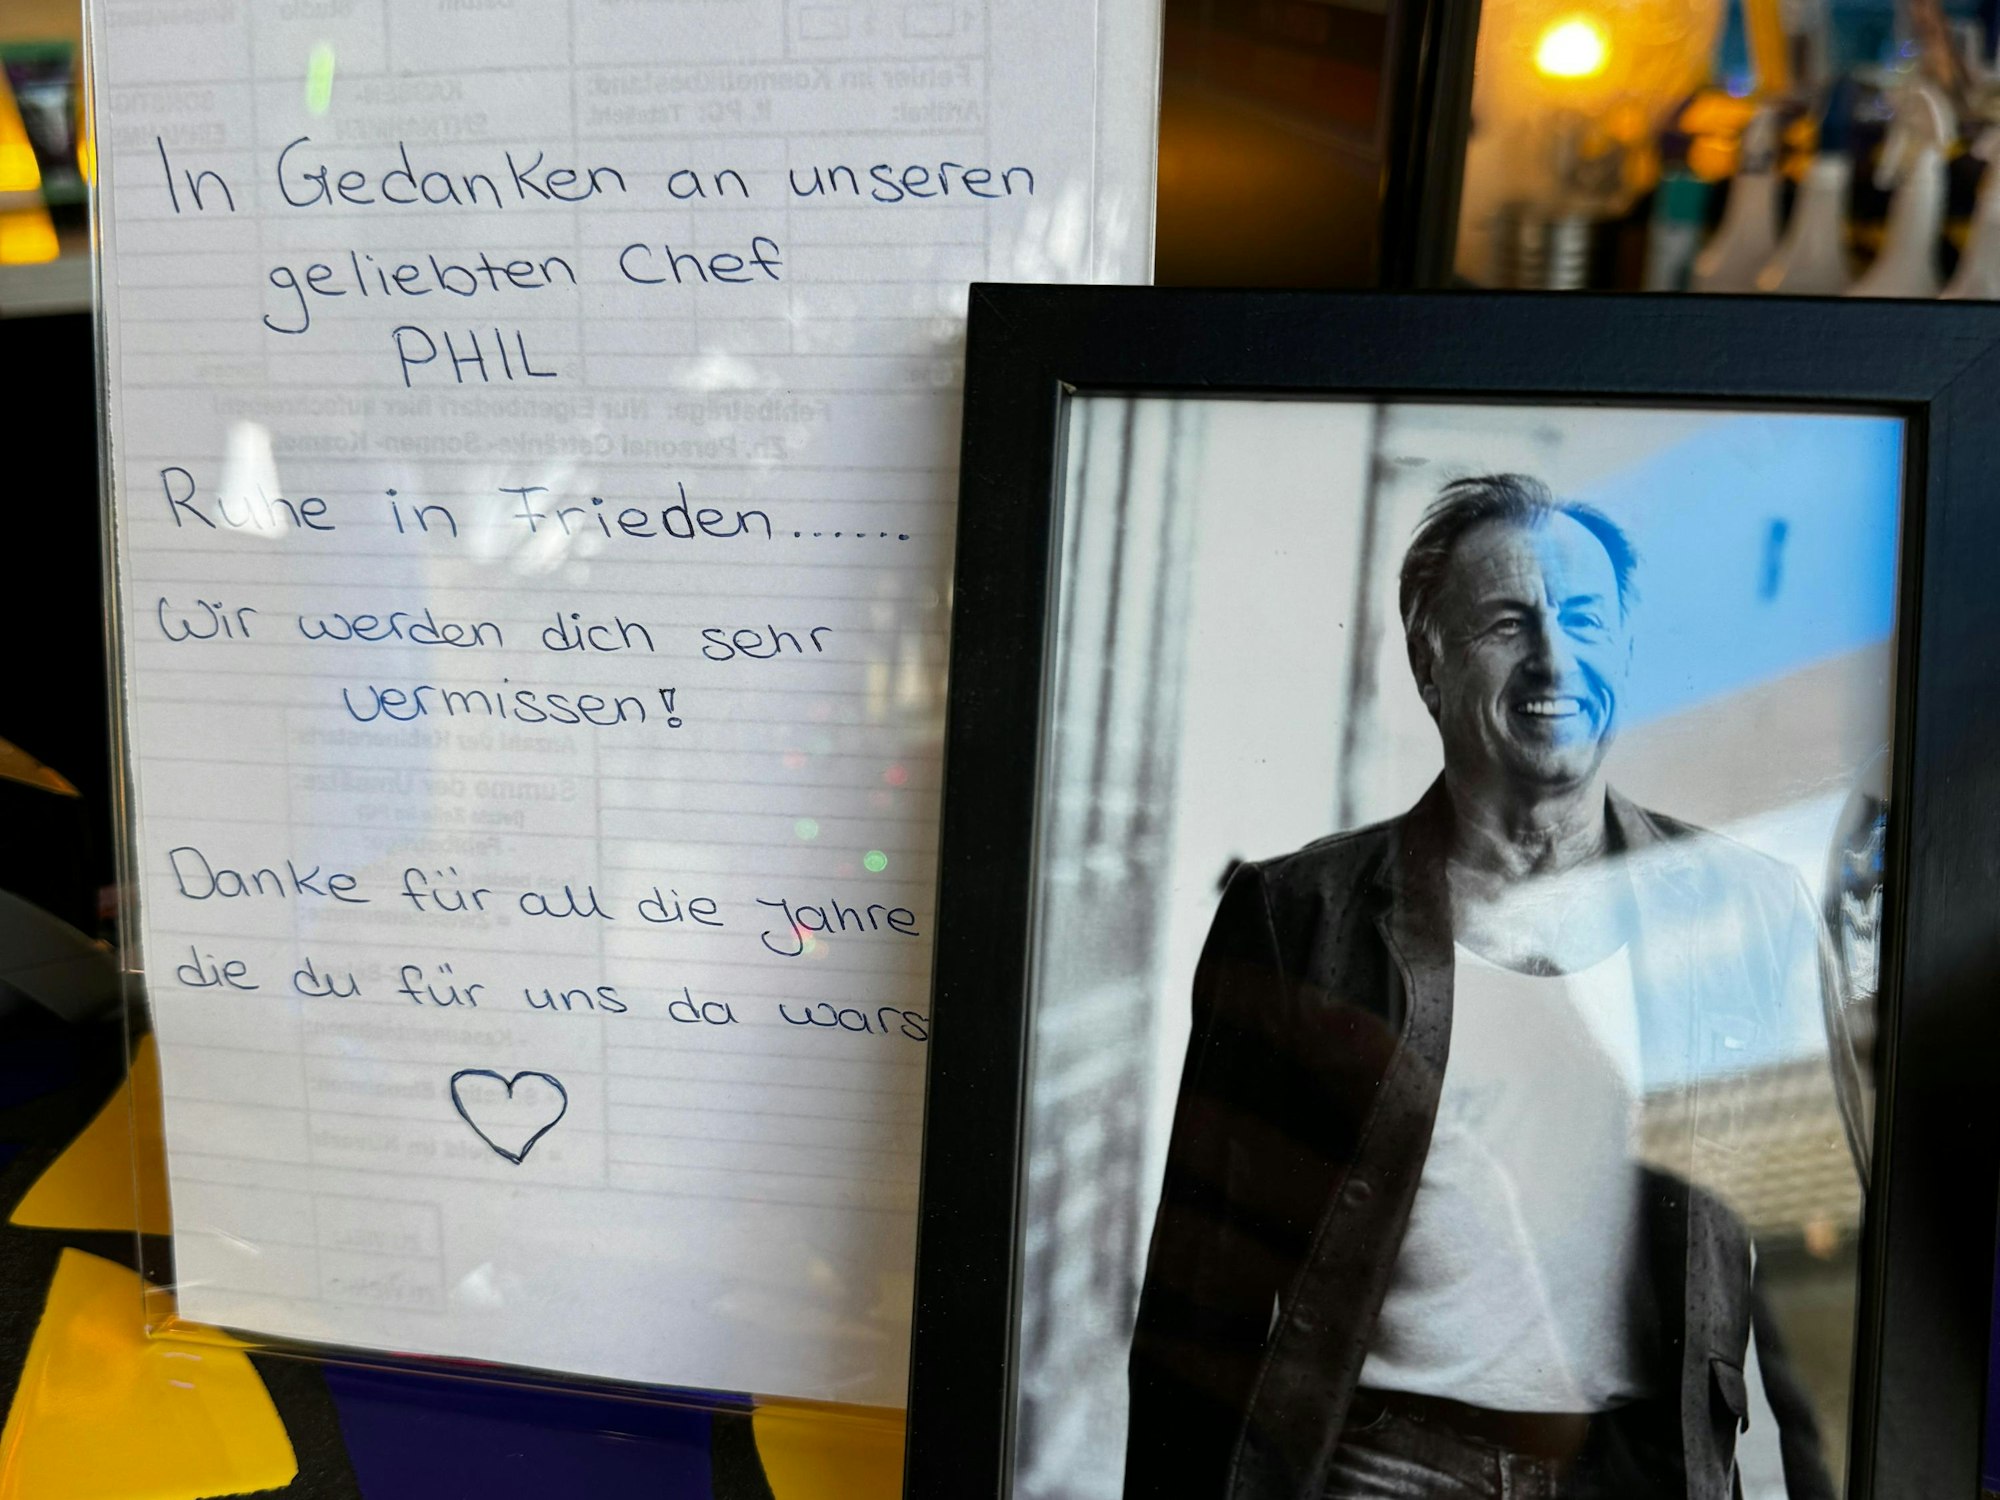 In Gedanken an unseren
geliebten Chef
PHIL
Ruhe in Frieden.......
Wir werden dich sehr
vermissen!
Danke für all die Jahre
die du für uns da wars